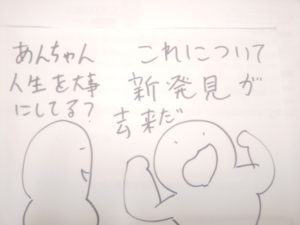 あんちゃん
人生を大事
にしてる?
これについて
新発見が
去来だ